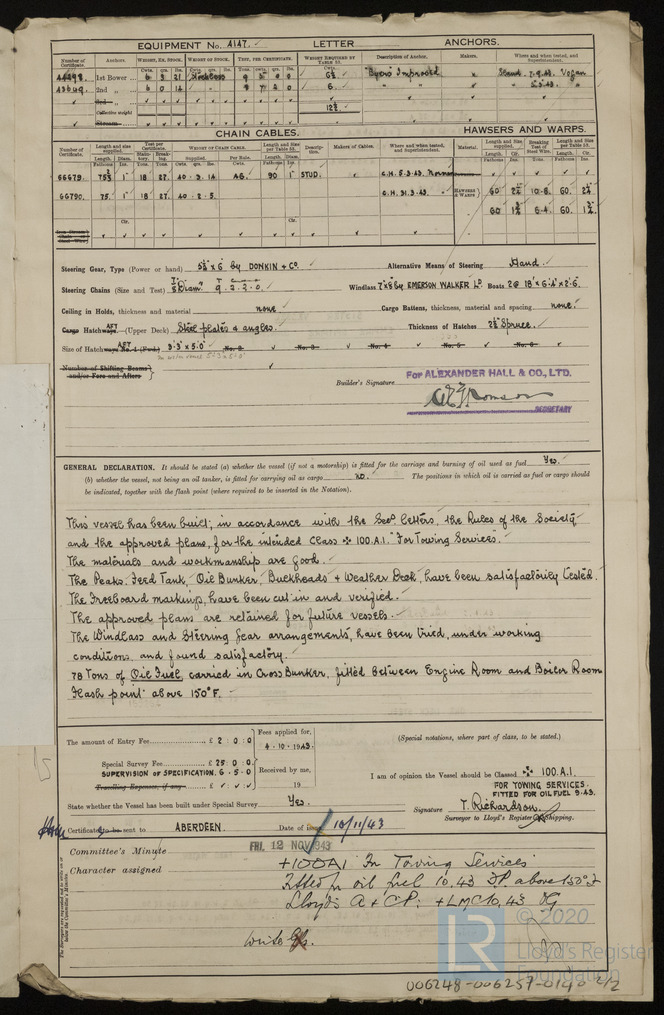 EQUIPMENT No. 4147. LETTER ANCHORS.
Number of Certificate. Anchors. WEIGHT, EX. STOCK. WEIGHT OF STOCK. TEST, PER CERTIFICATE. WEIGHT REQUIRED BY TABLE 53. Description of Anchor. Makers. Where and when tested, and Superintendent.
1st Bower 6 3 21 Stockless 9 Byers Improved 7.9.43. Vogan
2nd „ 6 0 14 6. 5.43.
3rd „
Collective weight 12¾
Stream
CHAIN CABLES. HAWSERS AND WARPS.
Number of Certificate. Length and size supplied. Test per Certificate. WEIGHT OF CHAIN CABLE. Length and size per Table 53. Description. Makers of Cables. Where and when tested, and Superintendent. Material. Length and size supplied. Breaking Test of Steel Wire. Length and size per Table 53.
Length. Diam. Statutory. Breaking. Supplied. Per Rule. Length. Diam. Length. Cir. Length. Cir.
66779. 75 1" 18 27. 40.3.14 AG. 90 1" STUD. C.H. 5.3.43. Norman 60 2¼ 10.6. 60. 2¼
66790. 75. 1" 18 27. 40.2.5. C.H. 31.3.43. HAWSERS & WARPS 60 1¾ 6.4. 60. 1¾
Steering Gear, Type (Power or hand) 5½" x 6" by DONKIN & Co. Alternative Means of Steering Hand.
Steering Chains (Size and Test) ⅞ Diam. 9.2.2.0. Windlass 7"x8 by EMERSON WALKER Ld. Boats 2 @ 18' x 6.4" x 2.6.
Ceiling in Holds, thickness and material none. Cargo Battens, thickness, material and spacing none.
Cargo Hatchways.—(Upper Deck) AFT Steel plates & angles. Thickness of Hatches 2½ Spruce.
Size of Hatchways No. 1 (Fwd.) AFT 3.3 x 5.0" No. 2 No. 3 No. 4 No. 5 No. 6
Number of Shifting Beams and/or Fore and Afters
Builder's Signature
For ALEXANDER HALL & CO., LTD.
SECRETARY
GENERAL DECLARATION. It should be stated (a) whether the vessel (if not a motorship) is fitted for the carriage and burning of oil used as fuel Yes.
(b) whether the vessel, not being an oil tanker, is fitted for carrying oil as cargo no. The positions in which oil is carried as fuel or cargo should
be indicated, together with the flash point (where required to be inserted in the Notation).
This vessel has been built, in accordance with the Secy letters, the Rules of the Society,
and the approved plans, for the intended Class ✠ 100.A.1. "For Towing Services".
The materials and workmanship are good.
The Peaks. Feed Tank, Oil Bunker, Bulkheads & Weather Deck, have been satisfactorily tested.
The Freeboard markings, have been cut in and verified.
The approved plans are retained for future vessels.
The Windlass and Steering Gear arrangements, have been tried, under working
conditions, and found satisfactory.
78 Tons of Oil Fuel, carried in Cross Bunker, fitted between Engine Room and Boiler Room
Flash point above 150°F.
The amount of Entry Fee £ 2 : 0 : 0 Fees applied for, 4.10.1943.
(Special notations, where part of class, to be stated.)
Special Survey Fee £ 25 : 0 : 0
SUPERVISION OF SPECIFICATION. 6 . 5 . 0 Received by me,
Travelling Expenses, if any £ 19
I am of opinion the Vessel should be Classed ✠ 100.A.1.
FOR TOWING SERVICES.
FITTED FOR OIL FUEL 9.43.
State whether the Vessel has been built under Special Survey Yes.
Signature T. Richardson.
Surveyor to Lloyd's Register of Shipping.
Certificate to be sent to ABERDEEN. Date of issue 16/11/43
Committee's Minute FRI. 12 NOV 1943
Character assigned +100A1 For Towing Services
Fitted for oil fuel 10.43 F.P. above 150°F
Lloyd's A & CP. +LMC 10.43
Write
© 2020
LR
Lloyd's Register
Foundation
006248-006257-0140 2/2